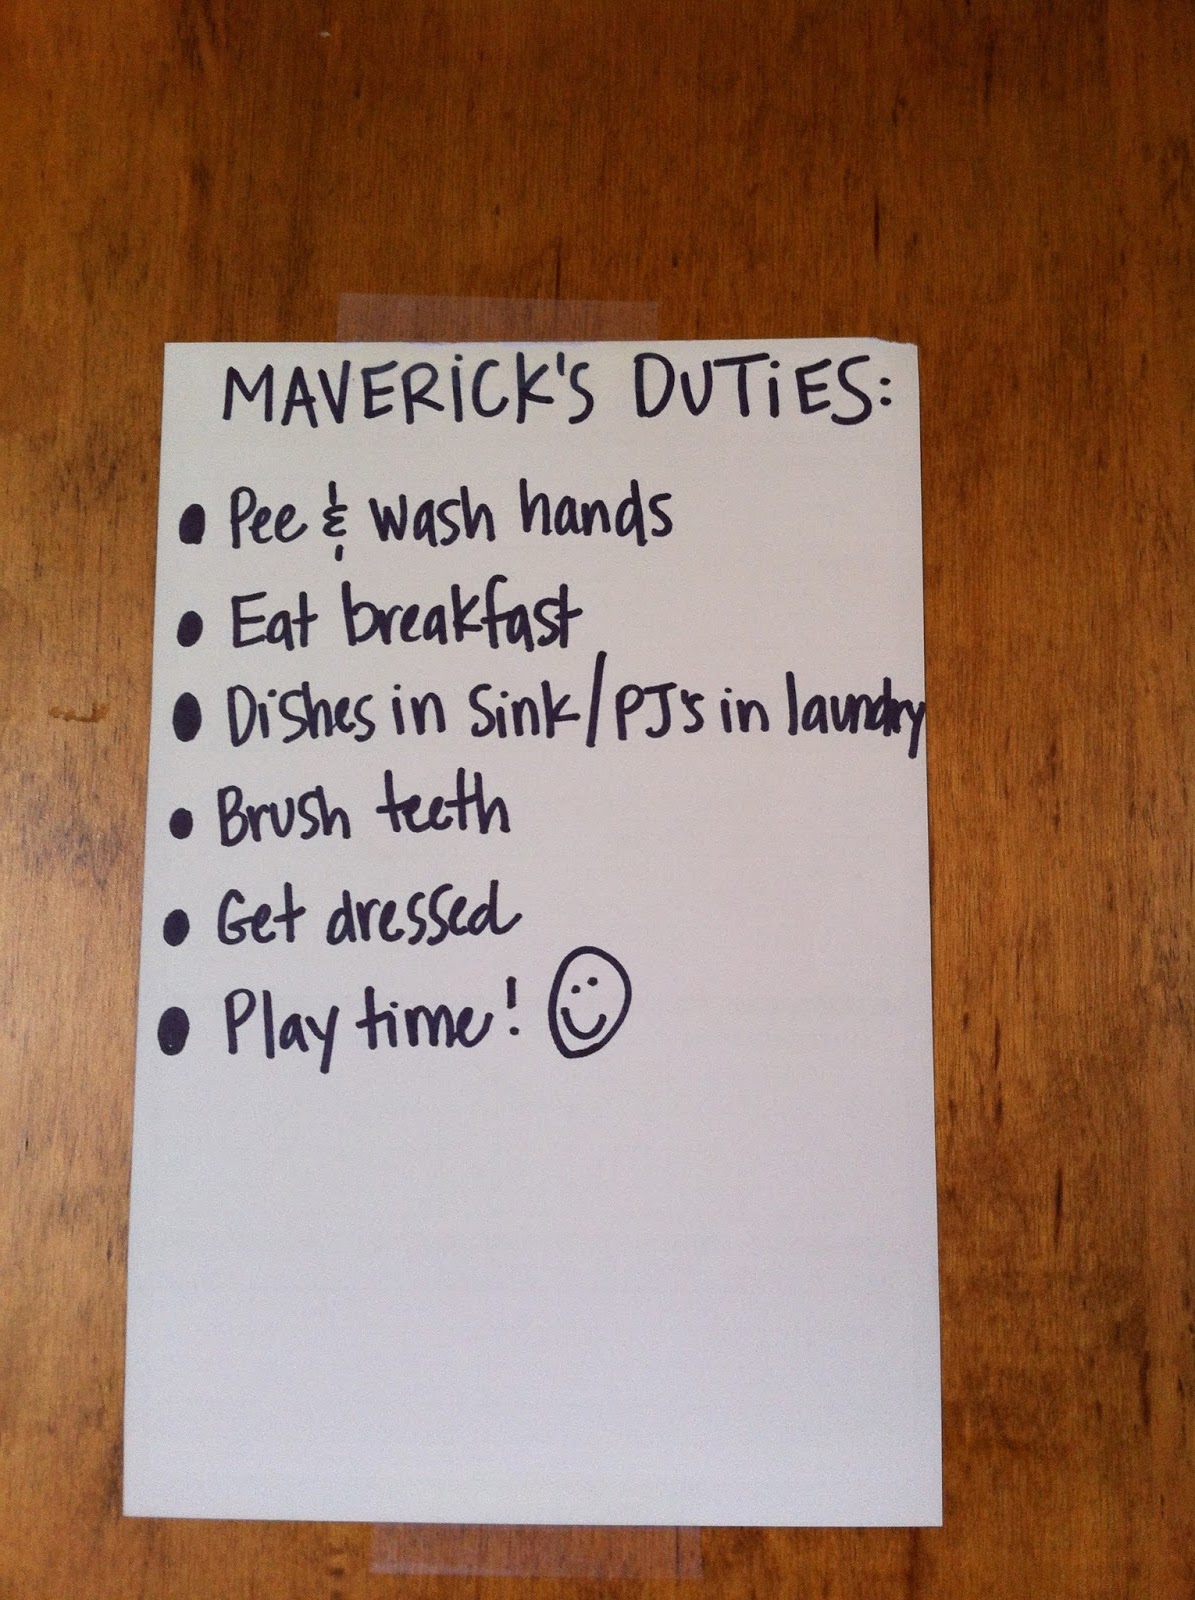 MAVERiCK'S DUTiES:
• Pee & wash hands
• Eat breakfast
• Dishes in sink/PJ's in laundry
• Brush teeth
• Get dressed
• Play time! ☺